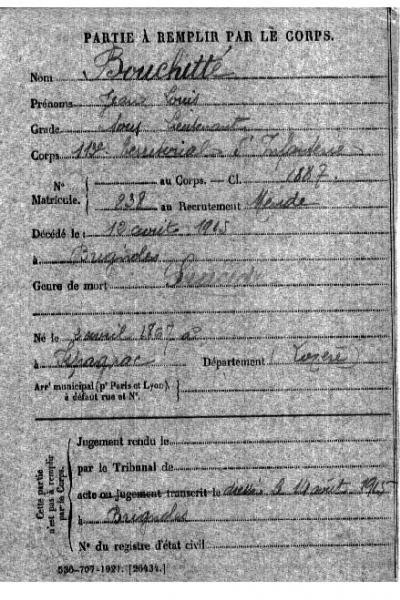 PARTIE À REMPLIR PAR LE CORPS.
Nom Bouchitté
Prénoms Jean Louis
Grade Sous Lieutenant
Corps Territorial d'Infanterie
N° Matricule. au Corps. — Cl. 1887.
238 au Recrutement Mende
Décédé le 12 août 1915
à Brignoles
Genre de mort
Né le avril 1867 à
à
Département Lozère
Arrᵗ municipal (pʳ Paris et Lyon),
à défaut rue et N°.
Cette partie n'est pas à remplir par le Corps.
Jugement rendu le
par le Tribunal de
acte ou jugement transcrit le dressé le 14 août 1915
à Brignoles
N° du registre d'état civil
536-707-1921. [26434.]